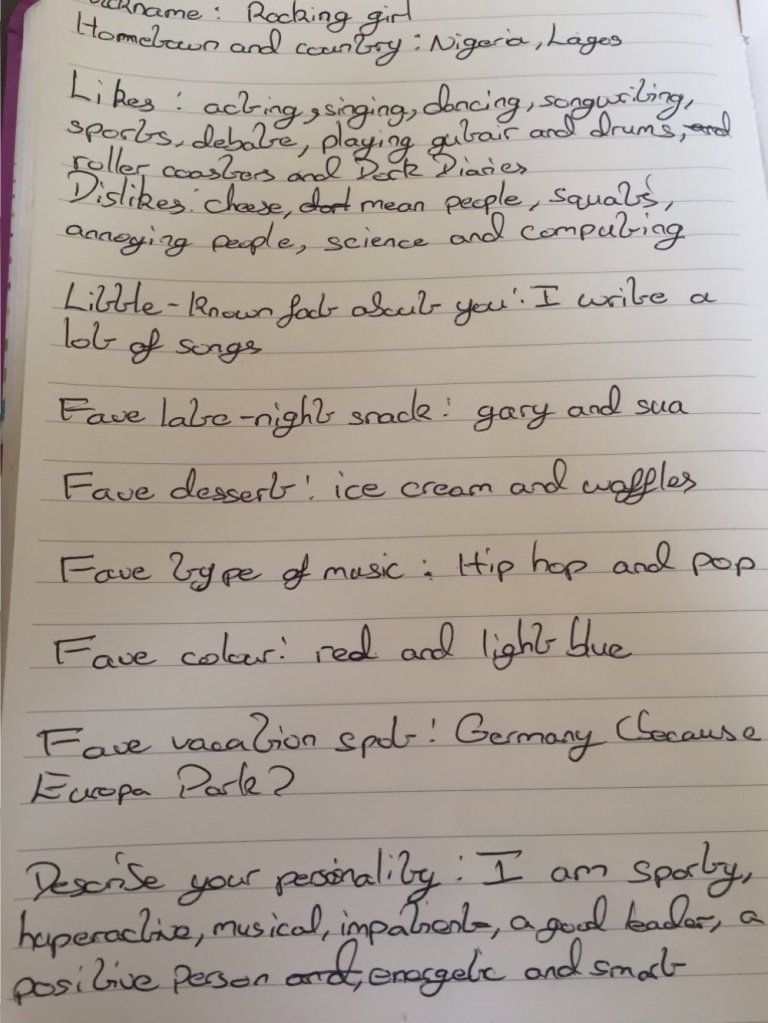 Nickname: Rocking girl
Hometown and country: Nigeria, Lagos
Likes: acting, singing, dancing, songwriting,
sports, debate, playing guitair and drums, and
roller coasters and Dork Diaries
Dislikes: cheese, mean people, squats,
annoying people, science and computing
Little-known fact about you: I write a
lot of songs
Fave late-night snack: gary and sua
Fave dessert: ice cream and waffles
Fave type of music: Hip hop and pop
Fave colour: red and light blue
Fave vacation spot: Germany (because
Europa Park)
Describe your personality: I am sporty,
hyperactive, musical, impatient, a good leader, a
positive person and, energetic and smart